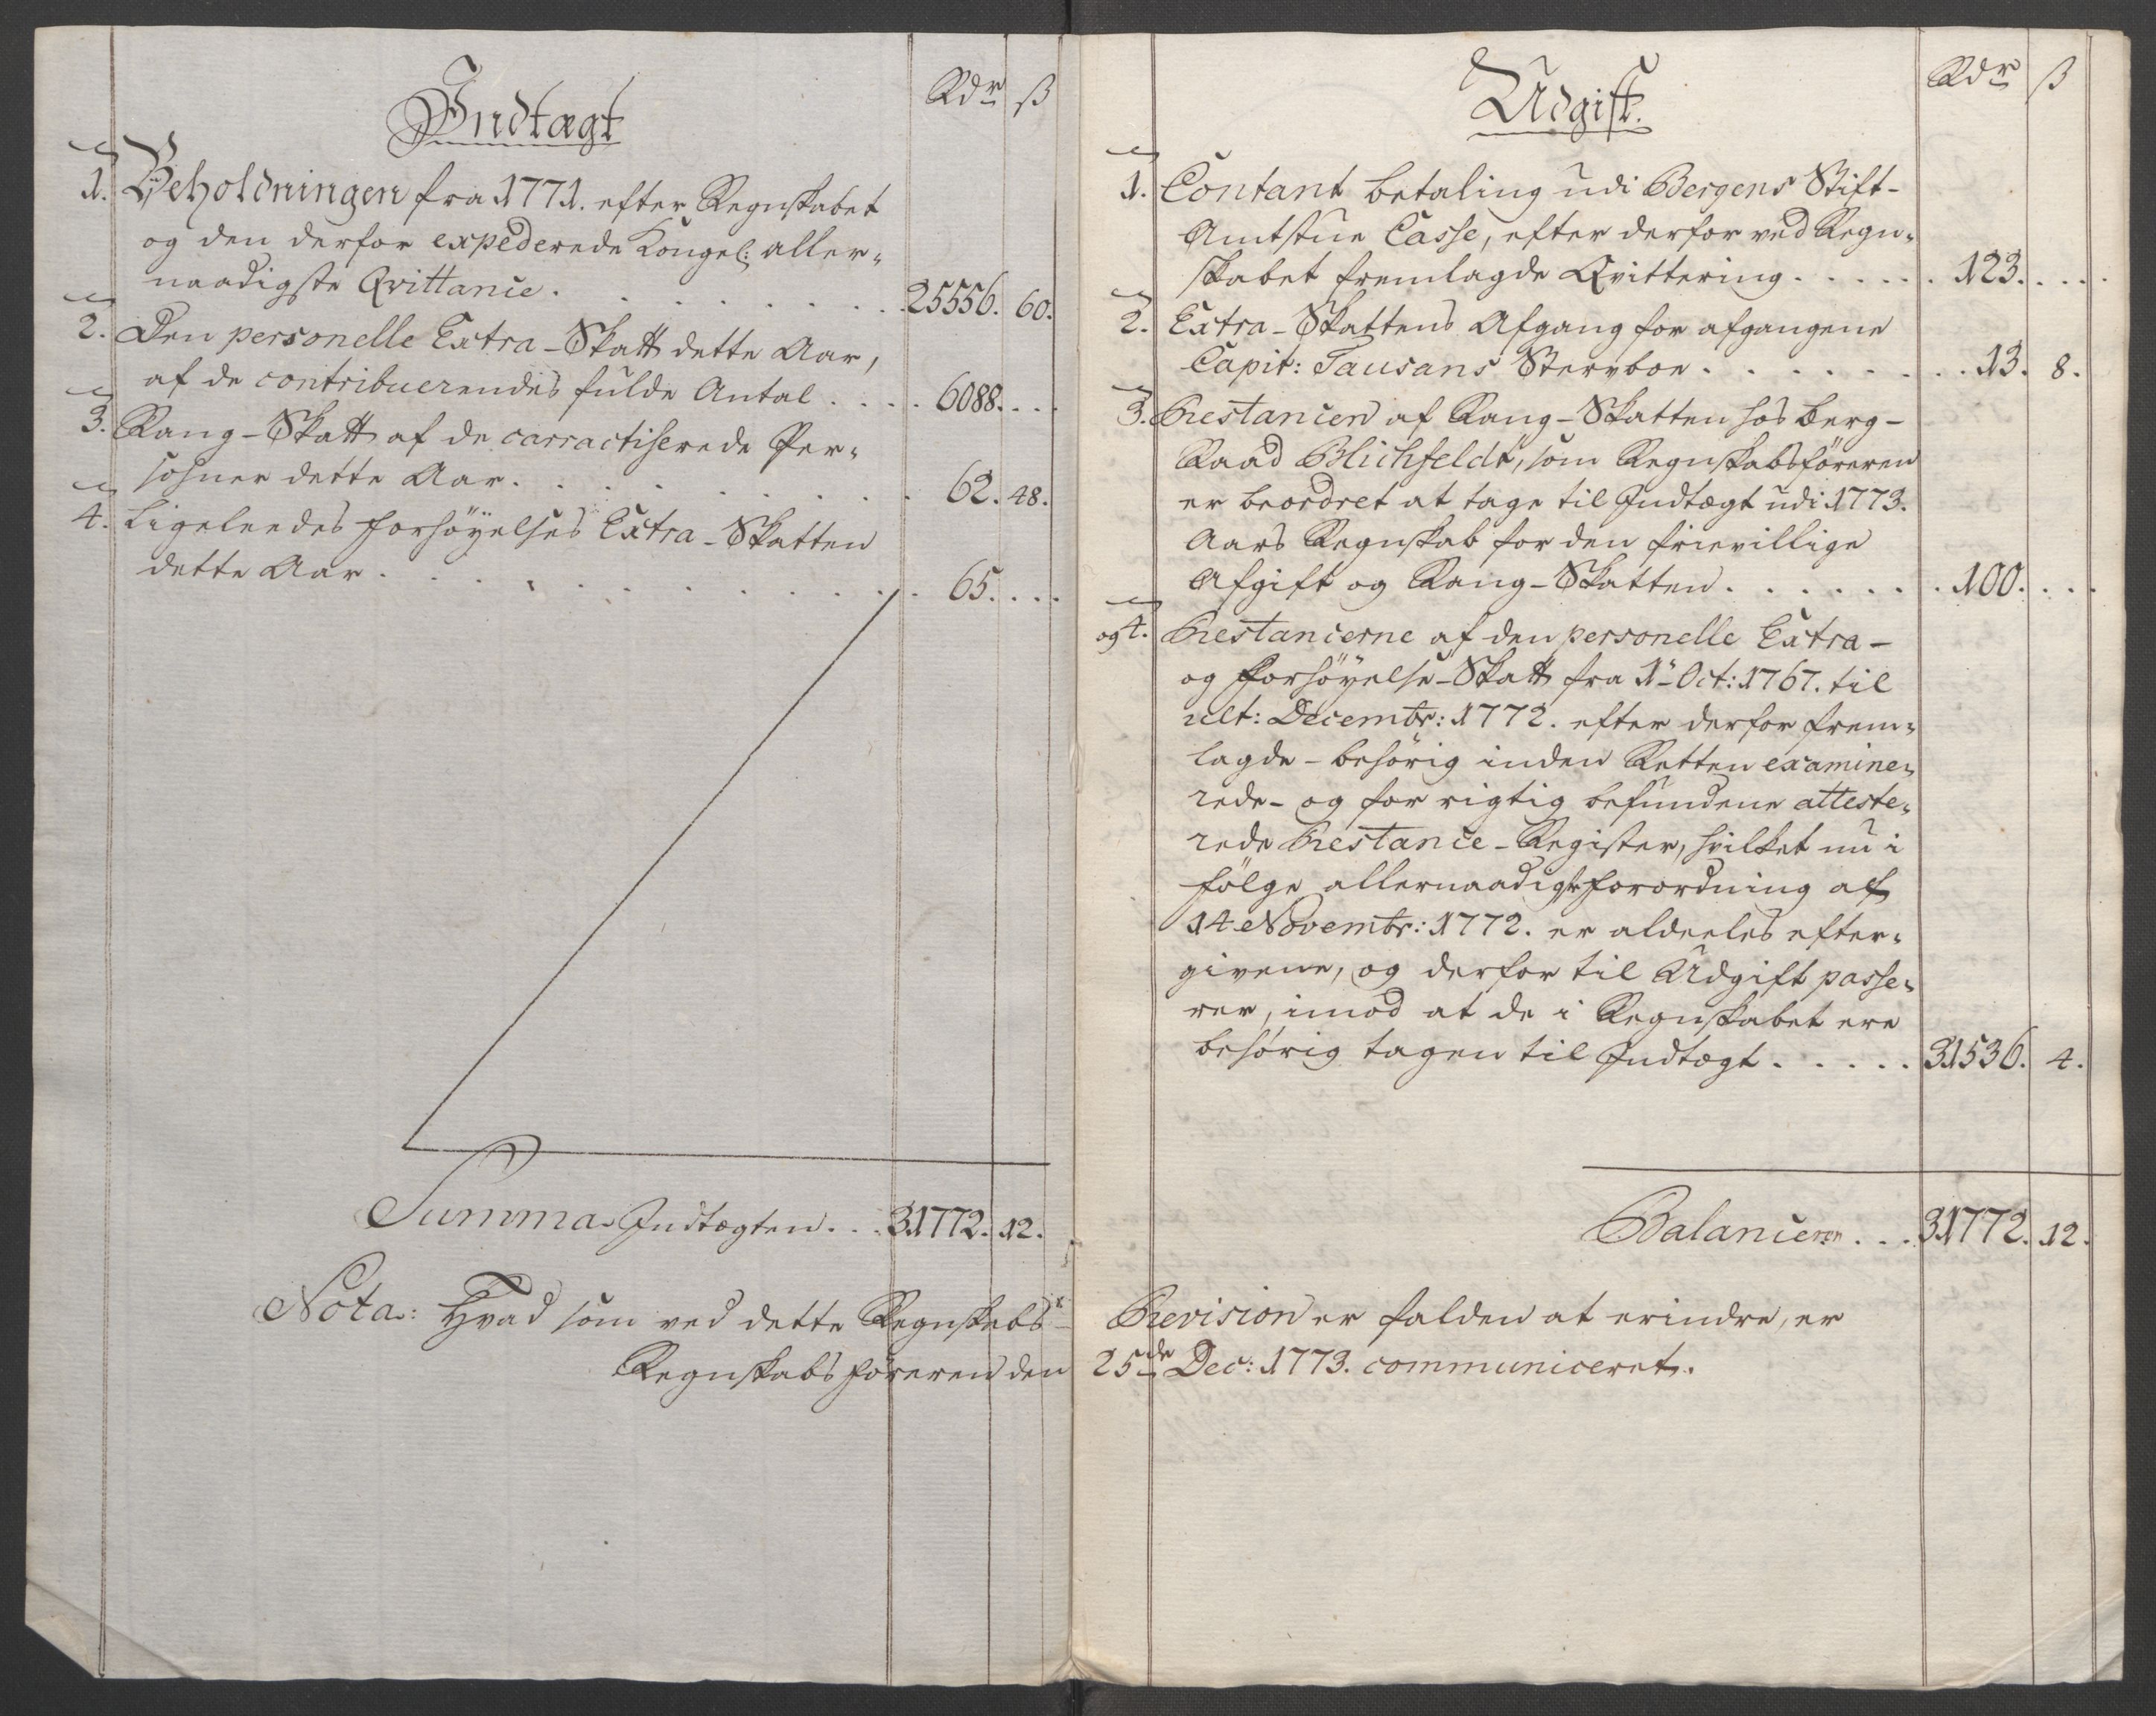 Indtægt
Rdr ß
1. Beholdningen fra 1771. efter Regnskabet
og den derfor expederede Kongel: aller-
naadigste Qvittance . . . . . . . . 25556. 60.
2. Den personelle Extra-Skatt dette Aar,
af de contribuerendes fulde Antal . . . . 6088. . . .
3. Rang-Skatt af de carractiserede Per-
sohner dette Aar . . . . . . . . 62. 48.
4. Ligeleedes forhøyelses Extra-Skatten
dette Aar . . . . . . . . . 65. . . .
Summa Indtægten . . . 31772. 12.
Udgift.
Rdr ß
1. Contant betaling udi Bergens Stift-
Amtstue Casse, efter derfor ved Regn-
skabet fremlagde Qvittering . . . . . . 123. . . .
2. Extra-Skattens Afgang for afgangene
Capit: Tausans Stervboe . . . . . . . . 13. 8.
3. Restancen af Rang-Skatten hos Berg-
Raad Blichfeldt, som Regnskabsføreren
er beordret at tage til Indtægt udi 1773.
Aars Regnskab for den frievillige
Afgift og Rang-Skatten . . . . . . . 100. . . .
og 4. Restancerne af den personelle Extra-
og Forhøyelse-Skatt fra 1. Oct: 1767. til
ult: Decembr: 1772. efter derfor frem-
lagde - behørig inden Retten examine-
rede - og for rigtig befundene atteste-
rede Restance-Register, hvilket nu i
følge allernaadigst forordning af
14 Novembr: 1772. er aldeeles efter-
givene, og derfor til Udgift passe-
rer, imod at de i Regnskabet ere
behørig tagen til Indtægt . . . . . 31536. 4.
Balancerer . . . 31772. 12.
Nota: Hvad som ved dette Regnskabs- Revision er falden at erindre, er
Regnskabsføreren den 25de Dec: 1773. communiceret.